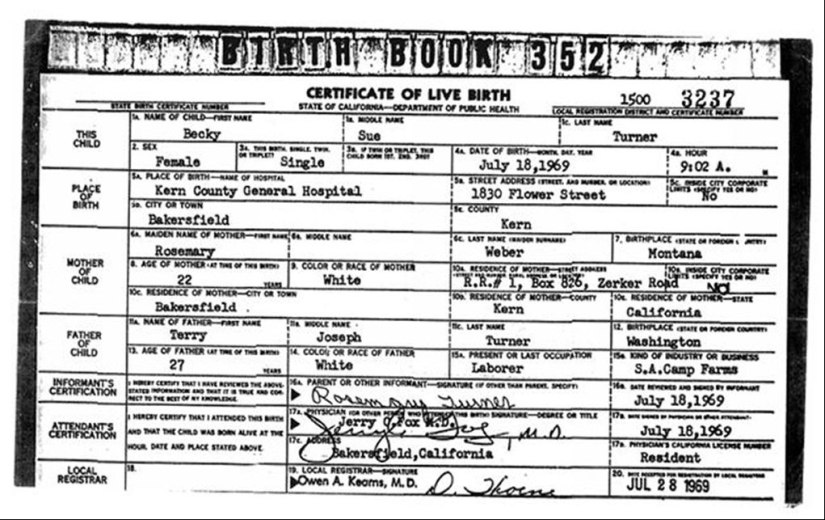 BIRTH BOOK 352
CERTIFICATE OF LIVE BIRTH
STATE OF CALIFORNIA—DEPARTMENT OF PUBLIC HEALTH
1500 3237
STATE BIRTH CERTIFICATE NUMBER
LOCAL REGISTRATION DISTRICT AND CERTIFICATE NUMBER
THIS CHILD
1A. NAME OF CHILD—FIRST NAME
Becky
1B. MIDDLE NAME
Sue
1C. LAST NAME
Turner
2. SEX
Female
3A. THIS BIRTH, SINGLE, TWIN, OR TRIPLET?
Single
3B. IF TWIN OR TRIPLET, THIS CHILD BORN 1ST, 2ND, 3RD?
4A. DATE OF BIRTH—MONTH, DAY, YEAR
July 18,1969
4B. HOUR
9:02 A. M
PLACE OF BIRTH
5A. PLACE OF BIRTH—NAME OF HOSPITAL
Kern County General Hospital
STREET ADDRESS (STREET, AND NUMBER, OR LOCATION)
1830 Flower Street
5C. INSIDE CITY CORPORATE LIMITS (SPECIFY YES OR NO)
No
CITY OR TOWN
Bakersfield
COUNTY
Kern
MOTHER OF CHILD
6A. MAIDEN NAME OF MOTHER—FIRST NAME
Rosemary
6B. MIDDLE NAME
6C. LAST NAME (MAIDEN SURNAME)
Weber
7. BIRTHPLACE (STATE OR FOREIGN COUNTRY)
Montana
8. AGE OF MOTHER (AT TIME OF THIS BIRTH)
22 YEARS
9. COLOR OR RACE OF MOTHER
White
10A. RESIDENCE OF MOTHER—STREET ADDRESS
R.R.# 1, Box 826, Zerker Road
INSIDE CITY CORPORATE LIMITS (SPECIFY YES OR NO)
No
10C. RESIDENCE OF MOTHER—CITY OR TOWN
Bakersfield .
RESIDENCE OF MOTHER—COUNTY
Kern
RESIDENCE OF MOTHER—STATE
California
FATHER OF CHILD
11A. NAME OF FATHER—FIRST NAME
Terry
MIDDLE NAME
Joseph
11C. LAST NAME
Turner
12. BIRTHPLACE (STATE OR FOREIGN COUNTRY)
Washington
13. AGE OF FATHER (AT TIME OF THIS BIRTH)
27 YEARS
14. COLOR OR RACE OF FATHER
White
15A. PRESENT OR LAST OCCUPATION
Laborer
KIND OF INDUSTRY OR BUSINESS
S.A.Camp Farms
INFORMANT'S CERTIFICATION
I HEREBY CERTIFY THAT I HAVE REVIEWED THE ABOVE-STATED INFORMATION AND THAT IT IS TRUE AND CORRECT TO THE BEST OF MY KNOWLEDGE.
16A. PARENT OR OTHER INFORMANT—SIGNATURE (IF OTHER THAN PARENT, SPECIFY)
Rosemary Turner
DATE REVIEWED AND SIGNED BY INFORMANT
July 18,1969
ATTENDANT'S CERTIFICATION
I HEREBY CERTIFY THAT I ATTENDED THIS BIRTH AND THAT THE CHILD WAS BORN ALIVE AT THE HOUR, DATE AND PLACE STATED ABOVE.
17A. PHYSICIAN SIGNATURE—DEGREE OR TITLE
Jerry C Fox M.D.
M.D.
DATE SIGNED BY PHYSICIAN OR OTHER ATTENDANT
July 18,1969
17C. ADDRESS
Bakersfield,California
PHYSICIAN'S CALIFORNIA LICENSE NUMBER
Resident
LOCAL REGISTRAR
18.
19. LOCAL REGISTRAR—SIGNATURE
Owen A. Kearns, M.D. D. Thoene
20. DATE ACCEPTED FOR REGISTRATION BY LOCAL REGISTRAR
JUL 28 1969